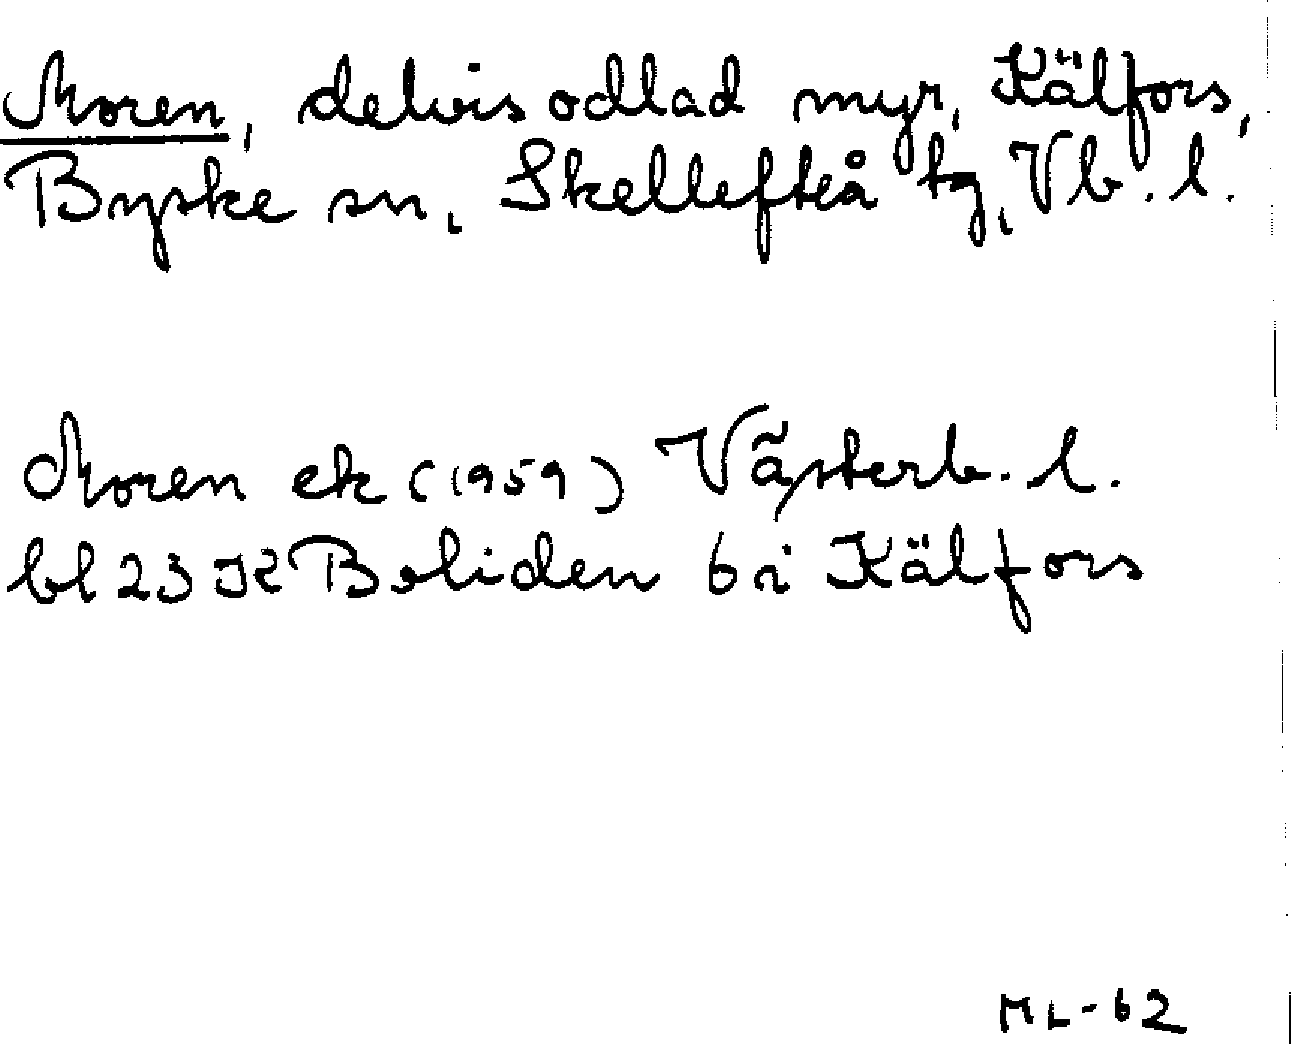 Moren, delvis odlad myr, Källfors,
Byske sn, Skellefteå tg, Vb. l.
Moren ek (1959) Västerb. l.
bl 23 K Boliden 6 i Kälfors
ML-62